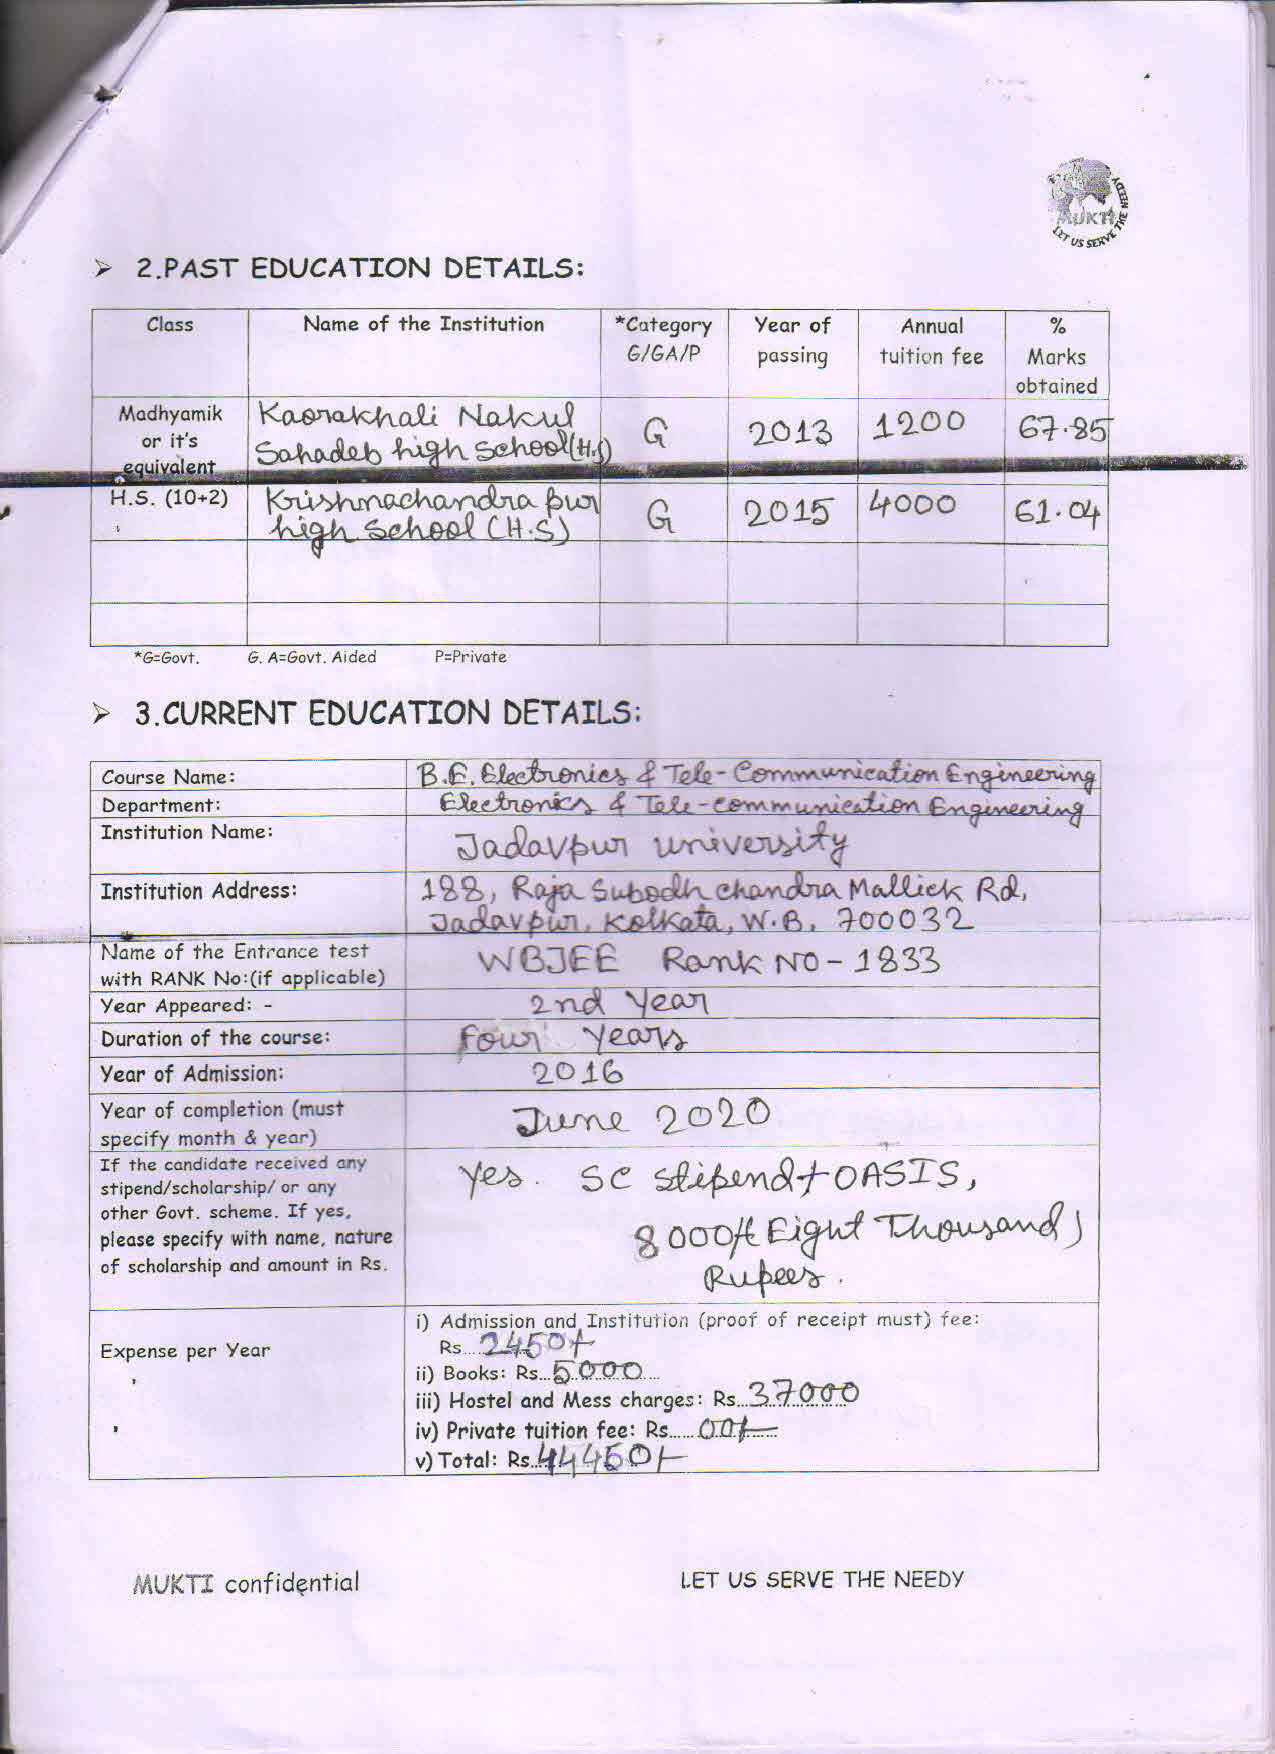 MUKTI
LET US SERVE THE NEEDY
➢ 2.PAST EDUCATION DETAILS:
Class Name of the Institution *Category G/GA/P Year of passing Annual tuition fee % Marks obtained
Madhyamik or it's equivalent Kaorakhali Nakul Sahadeb high School(H.S) G 2013 1200 67.85
H.S. (10+2) Krishnachandra pur high School (H.S) G 2015 4000 61.04
*G=Govt. G. A=Govt. Aided P=Private
➢ 3.CURRENT EDUCATION DETAILS:
Course Name: B.E. Electronics & Tele-Communication Engineering
Department: Electronics & Tele-communication Engineering
Institution Name: Jadavpur university
Institution Address: 188, Raja Subodh chandra Mallick Rd,
Jadavpur, Kolkata, W.B, 700032
Name of the Entrance test
with RANK No:(if applicable) WBJEE Rank NO - 1833
Year Appeared: - 2nd Year
Duration of the course: Four Years
Year of Admission: 2016
Year of completion (must
specify month & year) June 2020
If the candidate received any
stipend/scholarship/ or any
other Govt. scheme. If yes,
please specify with name, nature
of scholarship and amount in Rs.
Yes. SC Stipend + OASIS,
8000/- (Eight Thousand)
Rupees.
Expense per Year
i) Admission and Institution (proof of receipt must) fee:
Rs.....2450/-
ii) Books: Rs...5000....
iii) Hostel and Mess charges: Rs...37000
iv) Private tuition fee: Rs......00/-
v) Total: Rs..44450/-
MUKTI confidential LET US SERVE THE NEEDY